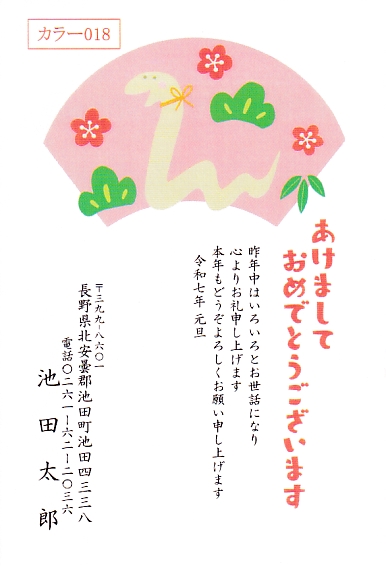 カラー018
あけまして
おめでとうございます
昨年中はいろいろとお世話になり
心よりお礼申し上げます
本年もどうぞよろしくお願い申し上げます
令和七年 元旦
〒三九九-八六〇一
長野県北安曇郡池田町池田四三三八
電話〇二六一-六二-二〇三六
池田太郎